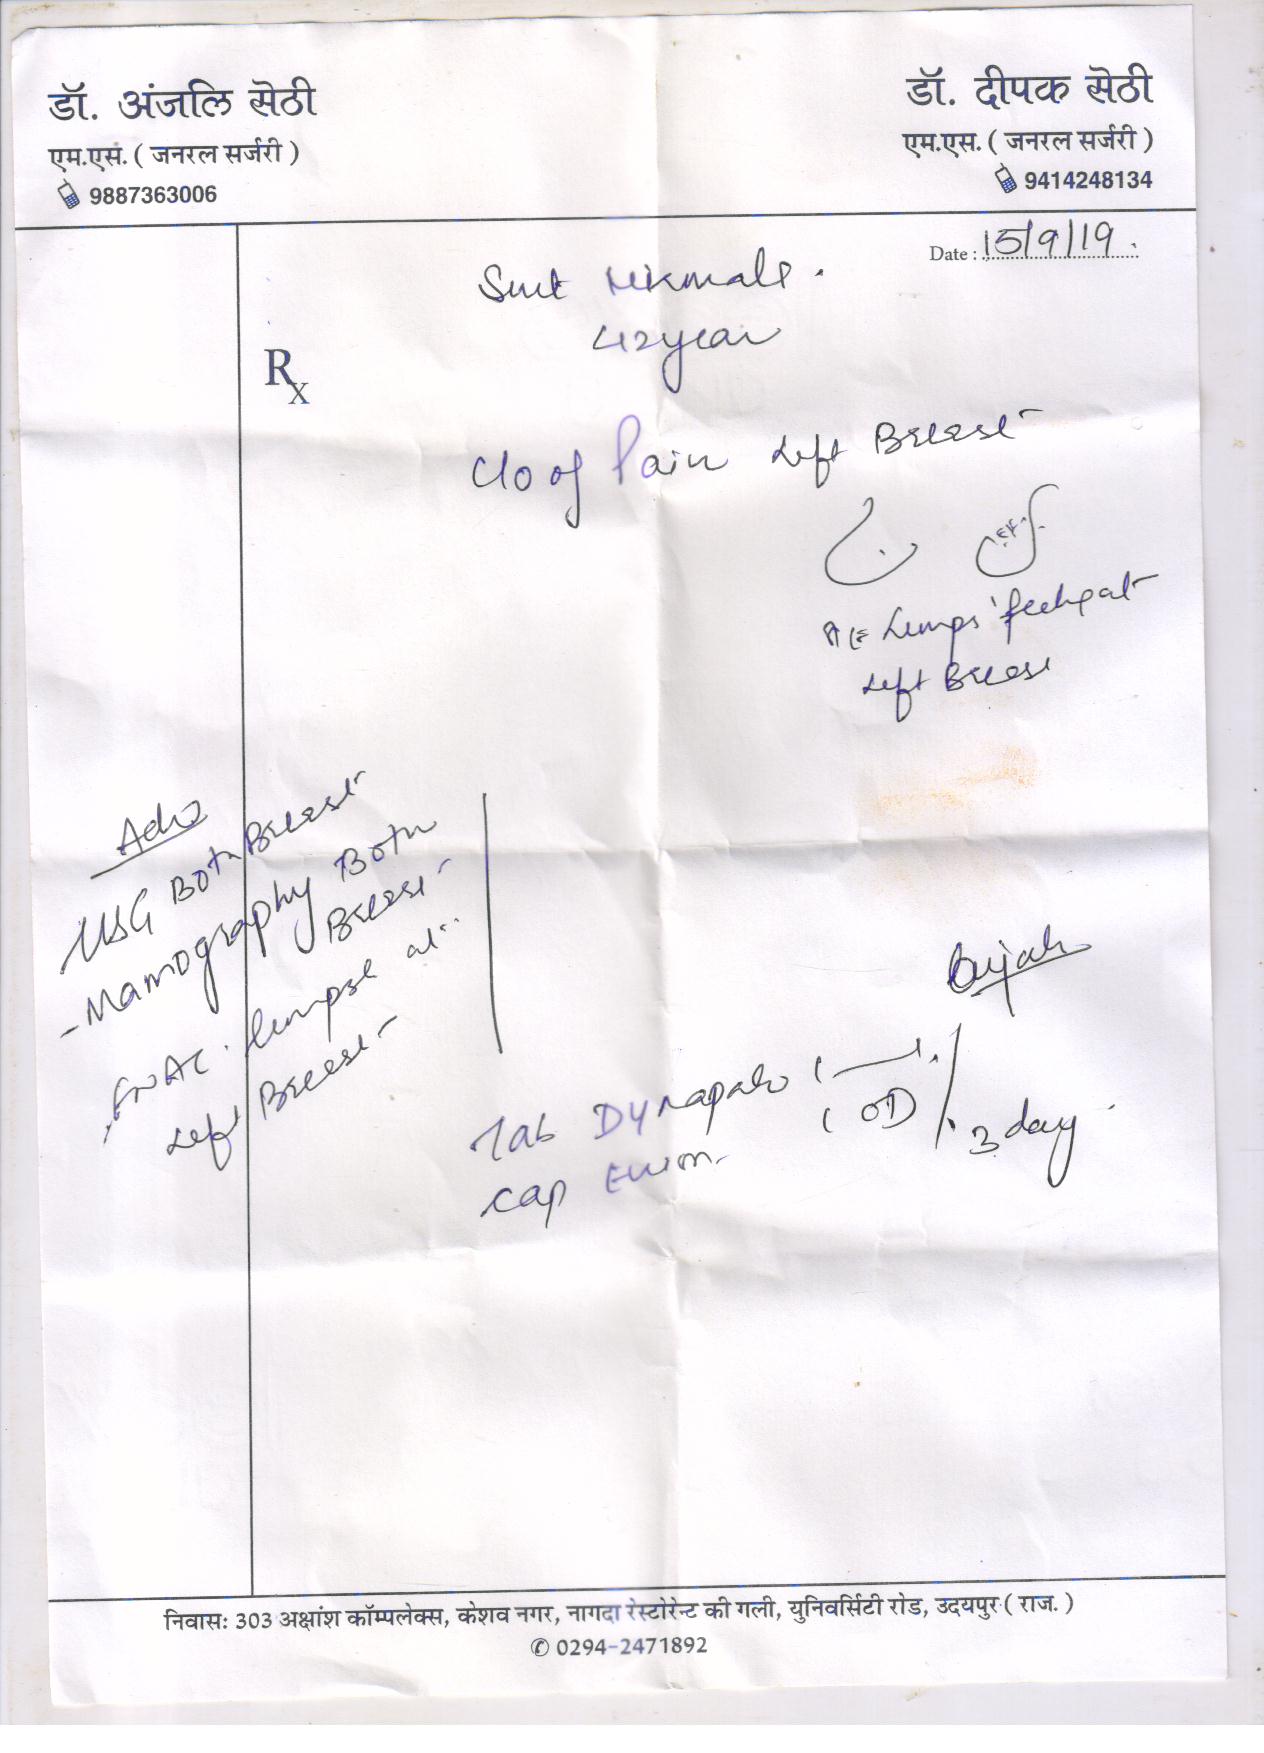 डॉ. अंजलि सेठी
एम.एस. ( जनरल सर्जरी )
9887363006
डॉ. दीपक सेठी
एम.एस. ( जनरल सर्जरी )
9414248134
Date : 15/9/19.
Rx
42 year
C/o of Pain Left Breast
Lumps
Left Breast
USG Both Breast
- Mamography Both
Breast
FNAC. at
Left Breast
Tab
Cap
OD
3 day
निवासः 303 अक्षांश कॉम्पलेक्स, केशव नगर, नागदा रेस्टोरेन्ट की गली, युनिवर्सिटी रोड, उदयपुर ( राज. )
0294-2471892